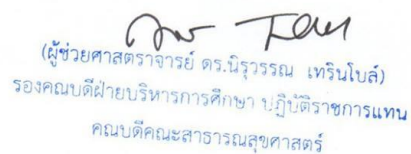 (ผู้ช่วยศาสตราจารย์ ดร.นิรุวรรณ เทรินโบล์)
รองคณบดีฝ่ายบริหารการศึกษา ปฏิบัติราชการแทน
คณบดีคณะสาธารณสุขศาสตร์